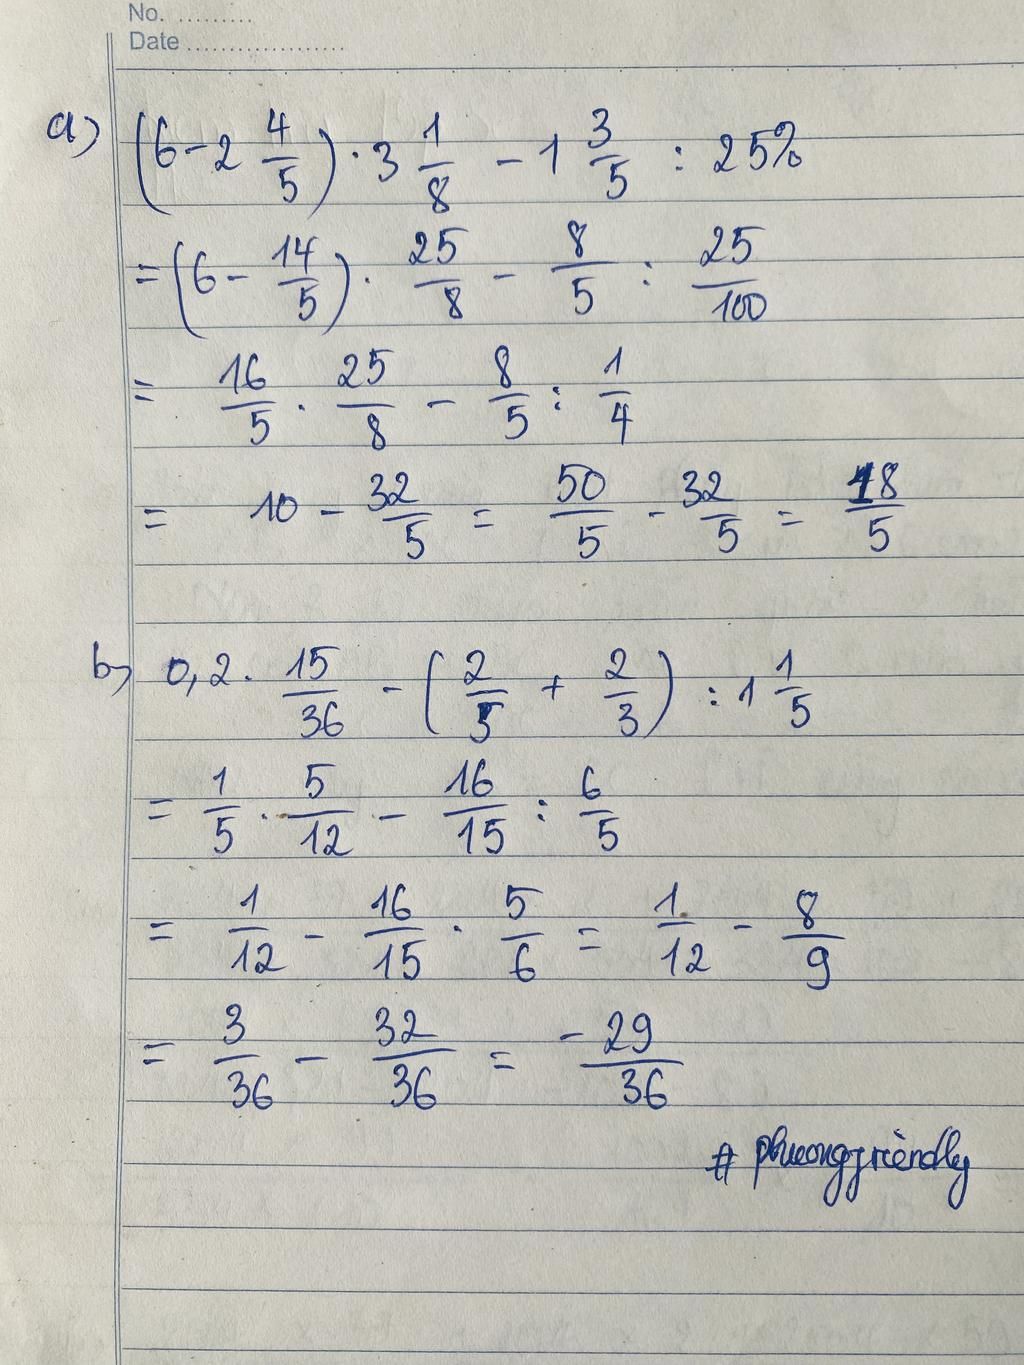 No. .........
Date ...................
a) (6 - 2 4/5) . 3 1/8 - 1 3/5 : 25%
= (6 - 14/5) . 25/8 - 8/5 : 25/100
= 16/5 . 25/8 - 8/5 : 1/4
= 10 - 32/5 = 50/5 - 32/5 = 18/5
b) 0,2 . 15/36 - (2/5 + 2/3) : 1 1/5
= 1/5 . 5/12 - 16/15 : 6/5
= 1/12 - 16/15 . 5/6 = 1/12 - 8/9
= 3/36 - 32/36 = -29/36
# phuongfriendly